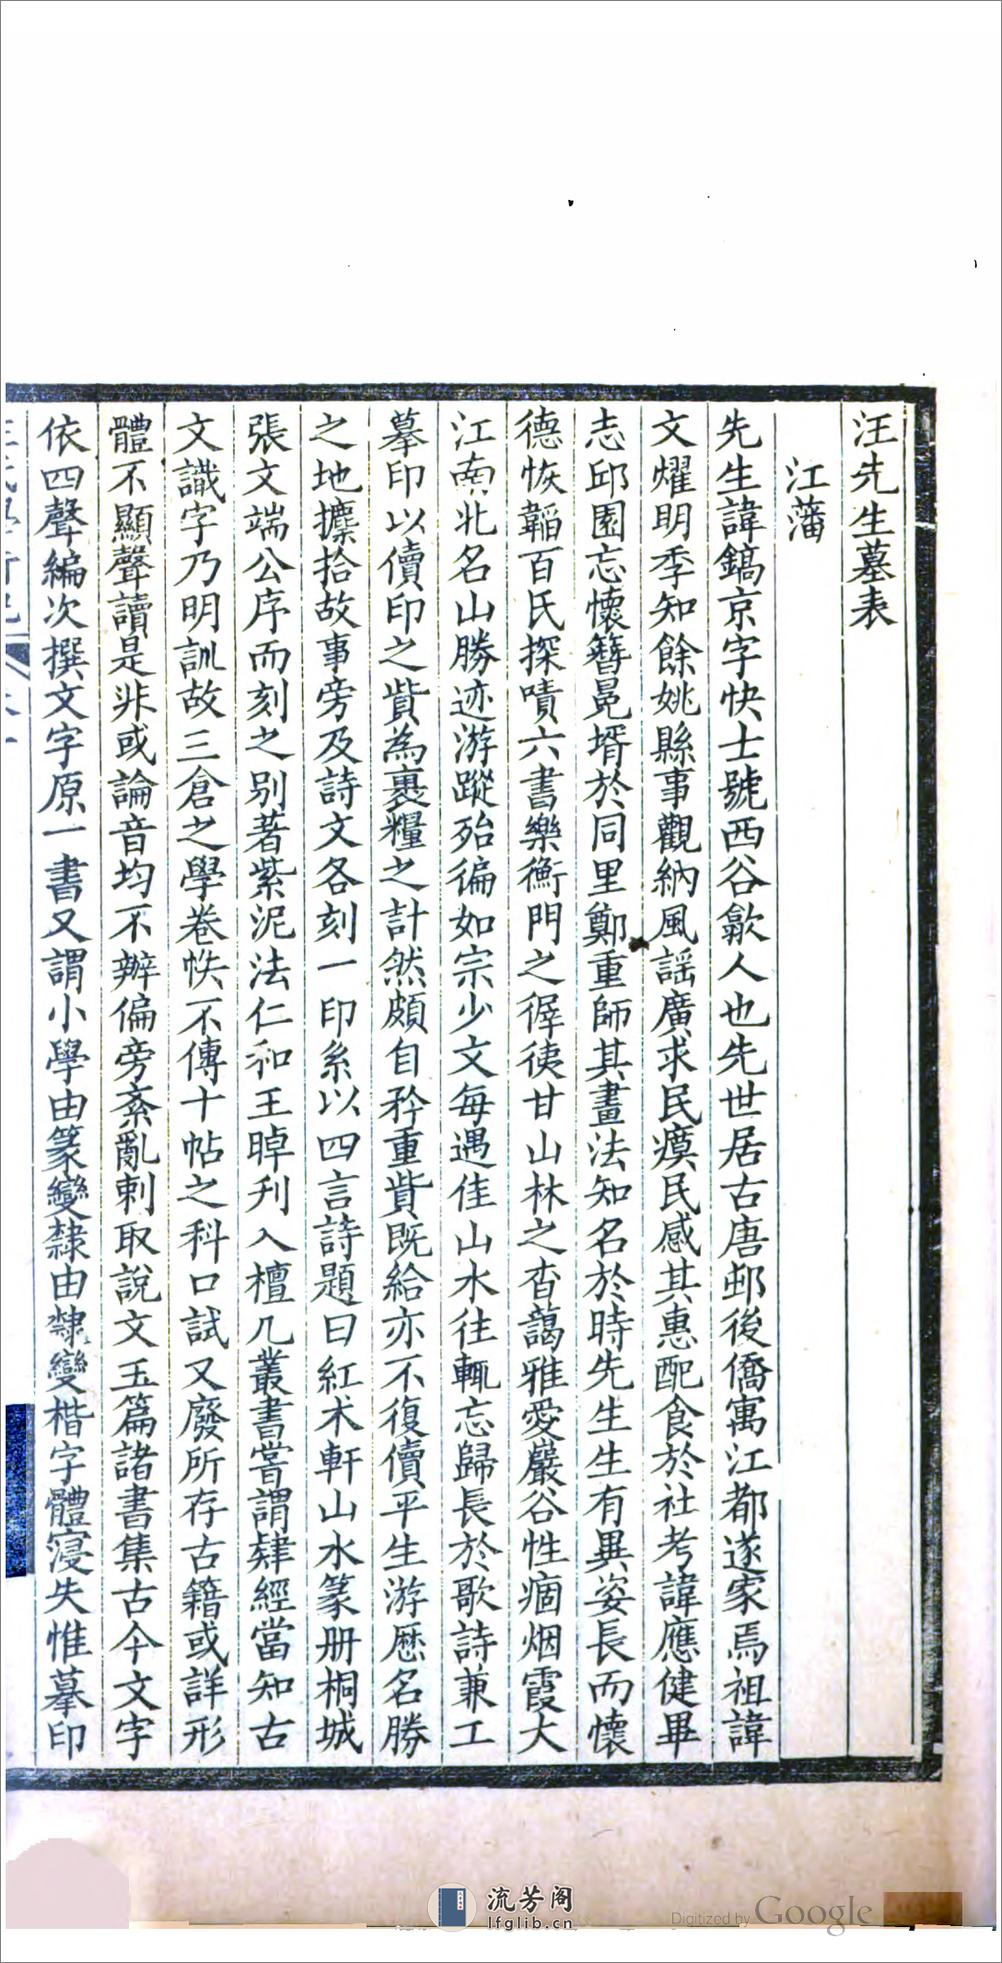 汪先生墓表
江藩
先生諱鎬京字快士號西谷歙人也先世居古唐邨後僑寓江都遂家焉祖諱
文燿明季知餘姚縣事觀納風謡廣求民瘼民感其惠配食於社考諱應健畢
志邱園忘懷簪冕壻於同里鄭重師其畫法知名於時先生生有異姿長而懷
德恢韜百氏探嘖六書樂衡門之徲徥甘山林之杳藹雅愛巖谷性痼烟霞大
江南北名山勝迹游蹤殆徧如宗少文每遇佳山水往輒忘歸長於歌詩兼工
摹印以價印之貲為裹糧之計然頗自矜重貲既給亦不復價平生游歷名勝
之地攈拾故事旁及詩文各刻一印系以四言詩題曰紅朮軒山水篆册桐城
張文端公序而刻之别著紫泥法仁和王晫刋入檀几叢書嘗謂肄經當知古
文識字乃明訓故三倉之學卷帙不傳十帖之科口試又廢所存古籍或詳形
體不顯聲讀是非或論音均不辧偏旁紊亂刺取說文玉篇諸書集古今文字
依四聲編次撰文字原一書又謂小學由篆變隸由隸變楷字體寖失惟摹印
流芳阁
lfglib.cn
Digitized by Google